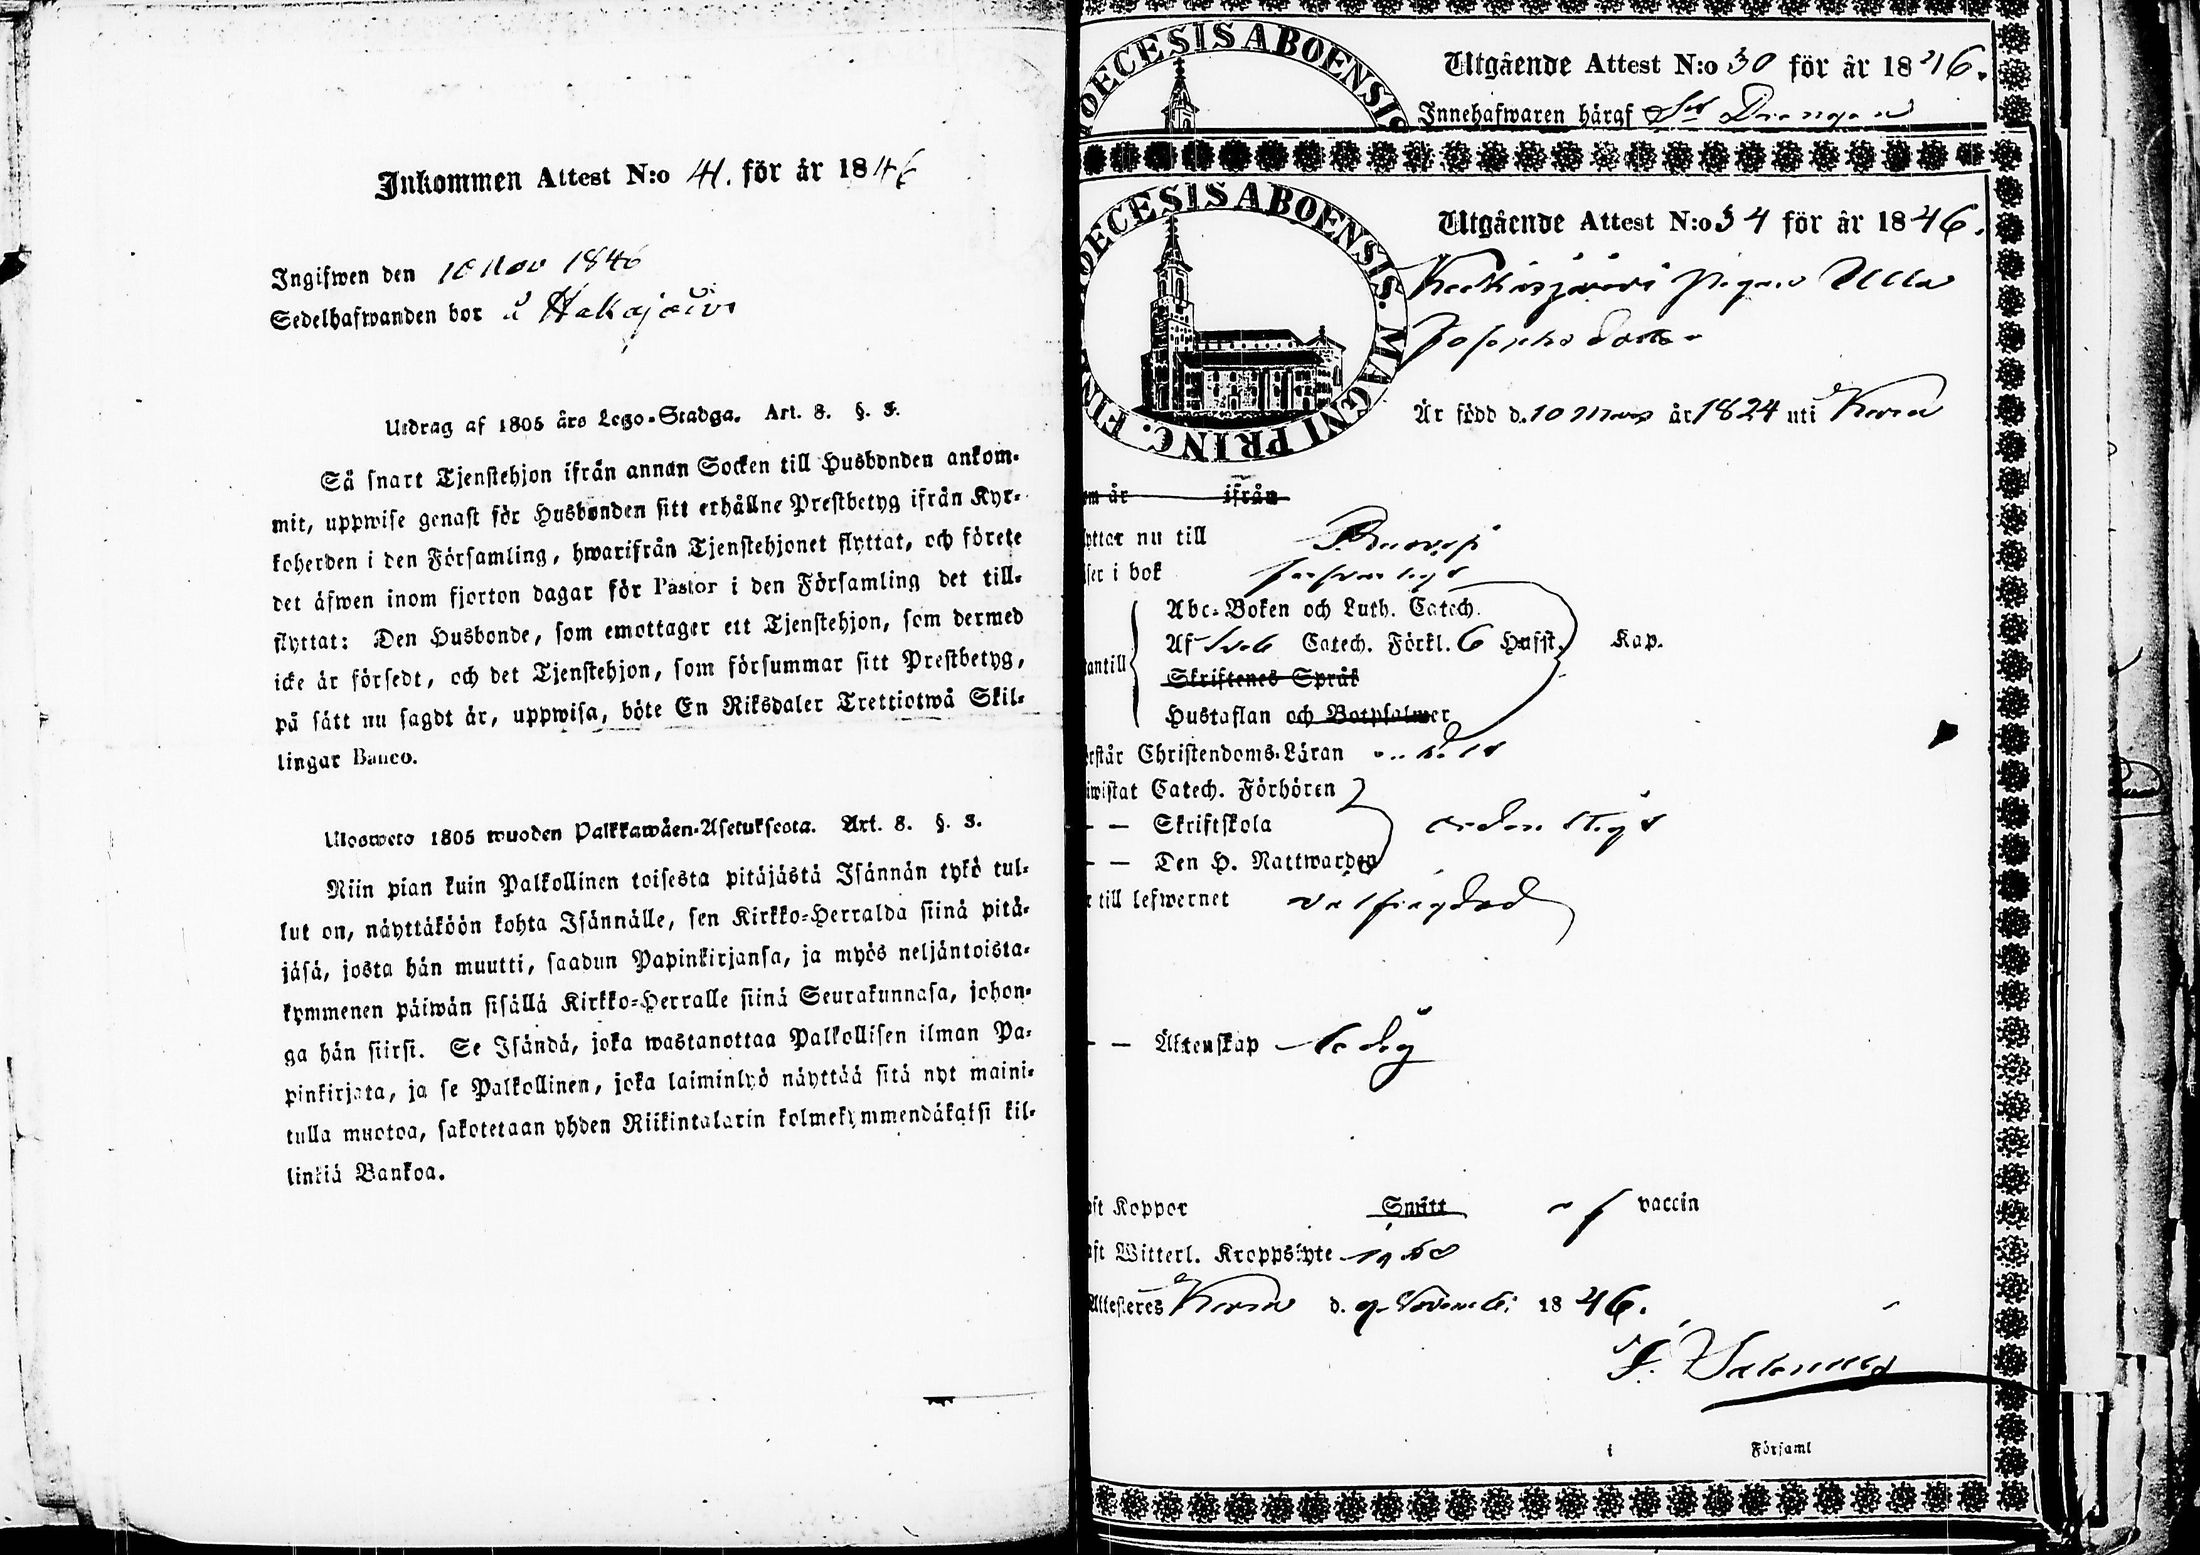 Inkommen Attest N:o 41. för år 1846
Ingifwen den 10 Nov 1846
Sedelhafwanden bor å Hakajärvi
Utdrag af 1805 års Lego-Stadga. Art. 8. §. 3.
Så snart Tjenstehjon ifrån annan Socken till Husbonden ankom-
mit, uppwise genast för Husbonden sitt erhållne Prestbetyg ifrån Kyr-
koherden i den Församling, hwarifrån Tjenstehjonet flyttat, och förete
det äfwen inom fjorton dagar för Pastor i den Församling det till-
flyttat: Den Husbonde, som emottager ett Tjenstehjon, som dermed
icke är försedt, och det Tjenstehjon, som försummar sitt Prestbetyg,
på sätt nu sagdt är, uppwisa, böte En Riksdaler Trettiotwå Skil-
lingar Banco.
Ulosweto 1805 wuoden Palkkawäen-Asetuksesta. Art. 8. §. 3.
Niin pian kuin Palkollinen toisesta pitäjästä Isännän tykö tul-
lut on, näyttäköön kohta Isännälle, sen Kirkko-Herralda siinä pitä-
jäsä, josta hän muutti, saadun Papinkirjansa, ja myös neljäntoista-
kymmenen päiwän sisällä Kirkko-Herralle siinä Seurakunnasa, johon-
ga hän siirsi. Se Isändä, joka wastanottaa Palkollisen ilman Pa-
pinkirjata, ja se Palkollinen, joka laiminlyö näyttää sitä nyt maini-
tulla muotoa, sakotetaan yhden Riikintalarin kolmekymmendäkaksi kil-
linkiä Bankoa.
OECESIS ABOENSIS
Utgående Attest N:o 30 för år 1846.
Innehafwaren häraf Sn Drängen
OECESIS ABOENSIS. MAGNI PRINC. FIN
Utgående Attest N:o 34 för år 1846.
pigan Ulla
Josephsdotter
Är född d. 10 Mars år 1824 uti
m är ifrån
yttar nu till
ser i bok försvarligt
antill
Abc-Boken och Luth. Catech.
Af Sveb Catech. Förkl. 6 Hufst. Kap.
Skriftenes Språk
Hustaflan och Botpsalmer
rstår Christendoms-Läran
iwistat Catech. Förhören
— — Skriftskola ordentligt
— — Den H. Nattwarden
r till lefwernet välfrägdad
— — Äktenskap ledig
ft Koppor Snitt af vaccin
ft Witterl. Kroppslyte
Attesteres d. 9 November 1846.
i Församl